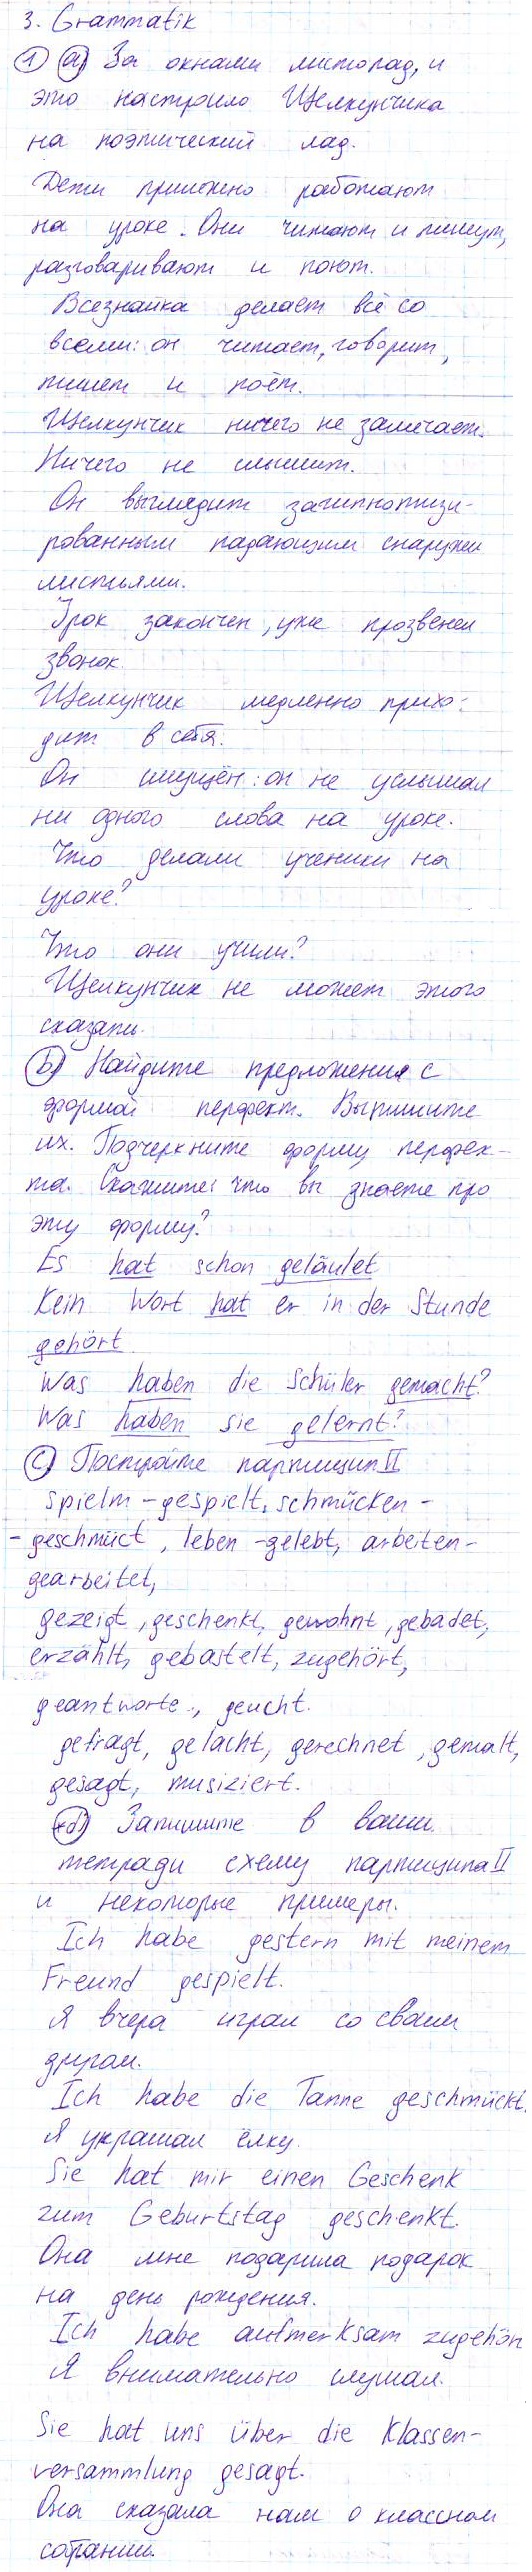 3. Grammatik
1 a) За окнами листопад, и
это настроило Щелкунчика
на поэтический лад.
Дети прилежно работают
на уроке. Они читают и пишут,
разговаривают и поют.
Всезнайка делает всё со
всеми: он читает, говорит,
пишет и поёт.
Щелкунчик ничего не замечает.
Ничего не слышит.
Он выглядит загипнотизи-
рованным падающими снаружи
листьями.
Урок закончен, уже прозвенел
звонок.
Щелкунчик медленно прихо-
дит в себя.
Он смущён: он не услышал
ни одного слова на уроке.
Что делали ученики на
уроке?
Что они учили?
Щелкунчик не может этого
сказать.
b) Найдите предложения с
формой перфект. Выпишите
их. Подчеркните форму перфек-
та. Скажите: что вы знаете про
эту форму?
Es hat schon geläutet
Kein Wort hat er in der Stunde
gehört
Was haben die Schüler gemacht?
Was haben sie gelernt?
c) Постройте партицип II
spielm - gespielt, schmücken -
- geschmüct, leben - gelebt, arbeiten -
gearbeitet,
gezeigt, geschenkt, gewohnt, gebadet,
erzählt, gebastelt, zugehört,
geantworte., geucht.
gefragt, gelacht, gerechnet, gemalt,
gesagt, musiziert.
d) Запишите в ваши
тетради схему партиципа II
и некоторые примеры.
Ich habe gestern mit meinem
Freund gespielt.
Я вчера играл со своим
другом.
Ich habe die Tanne geschmückt.
Я украшал ёлку.
Sie hat mir einen Geschenk
zum Geburtstag geschenkt.
Она мне подарила подарок
на день рождения.
Ich habe aufmerksam zugehör
Я внимательно слушал.
Sie hat uns über die Klassen-
versammlung gesagt.
Она сказала нам о классном
собрании.